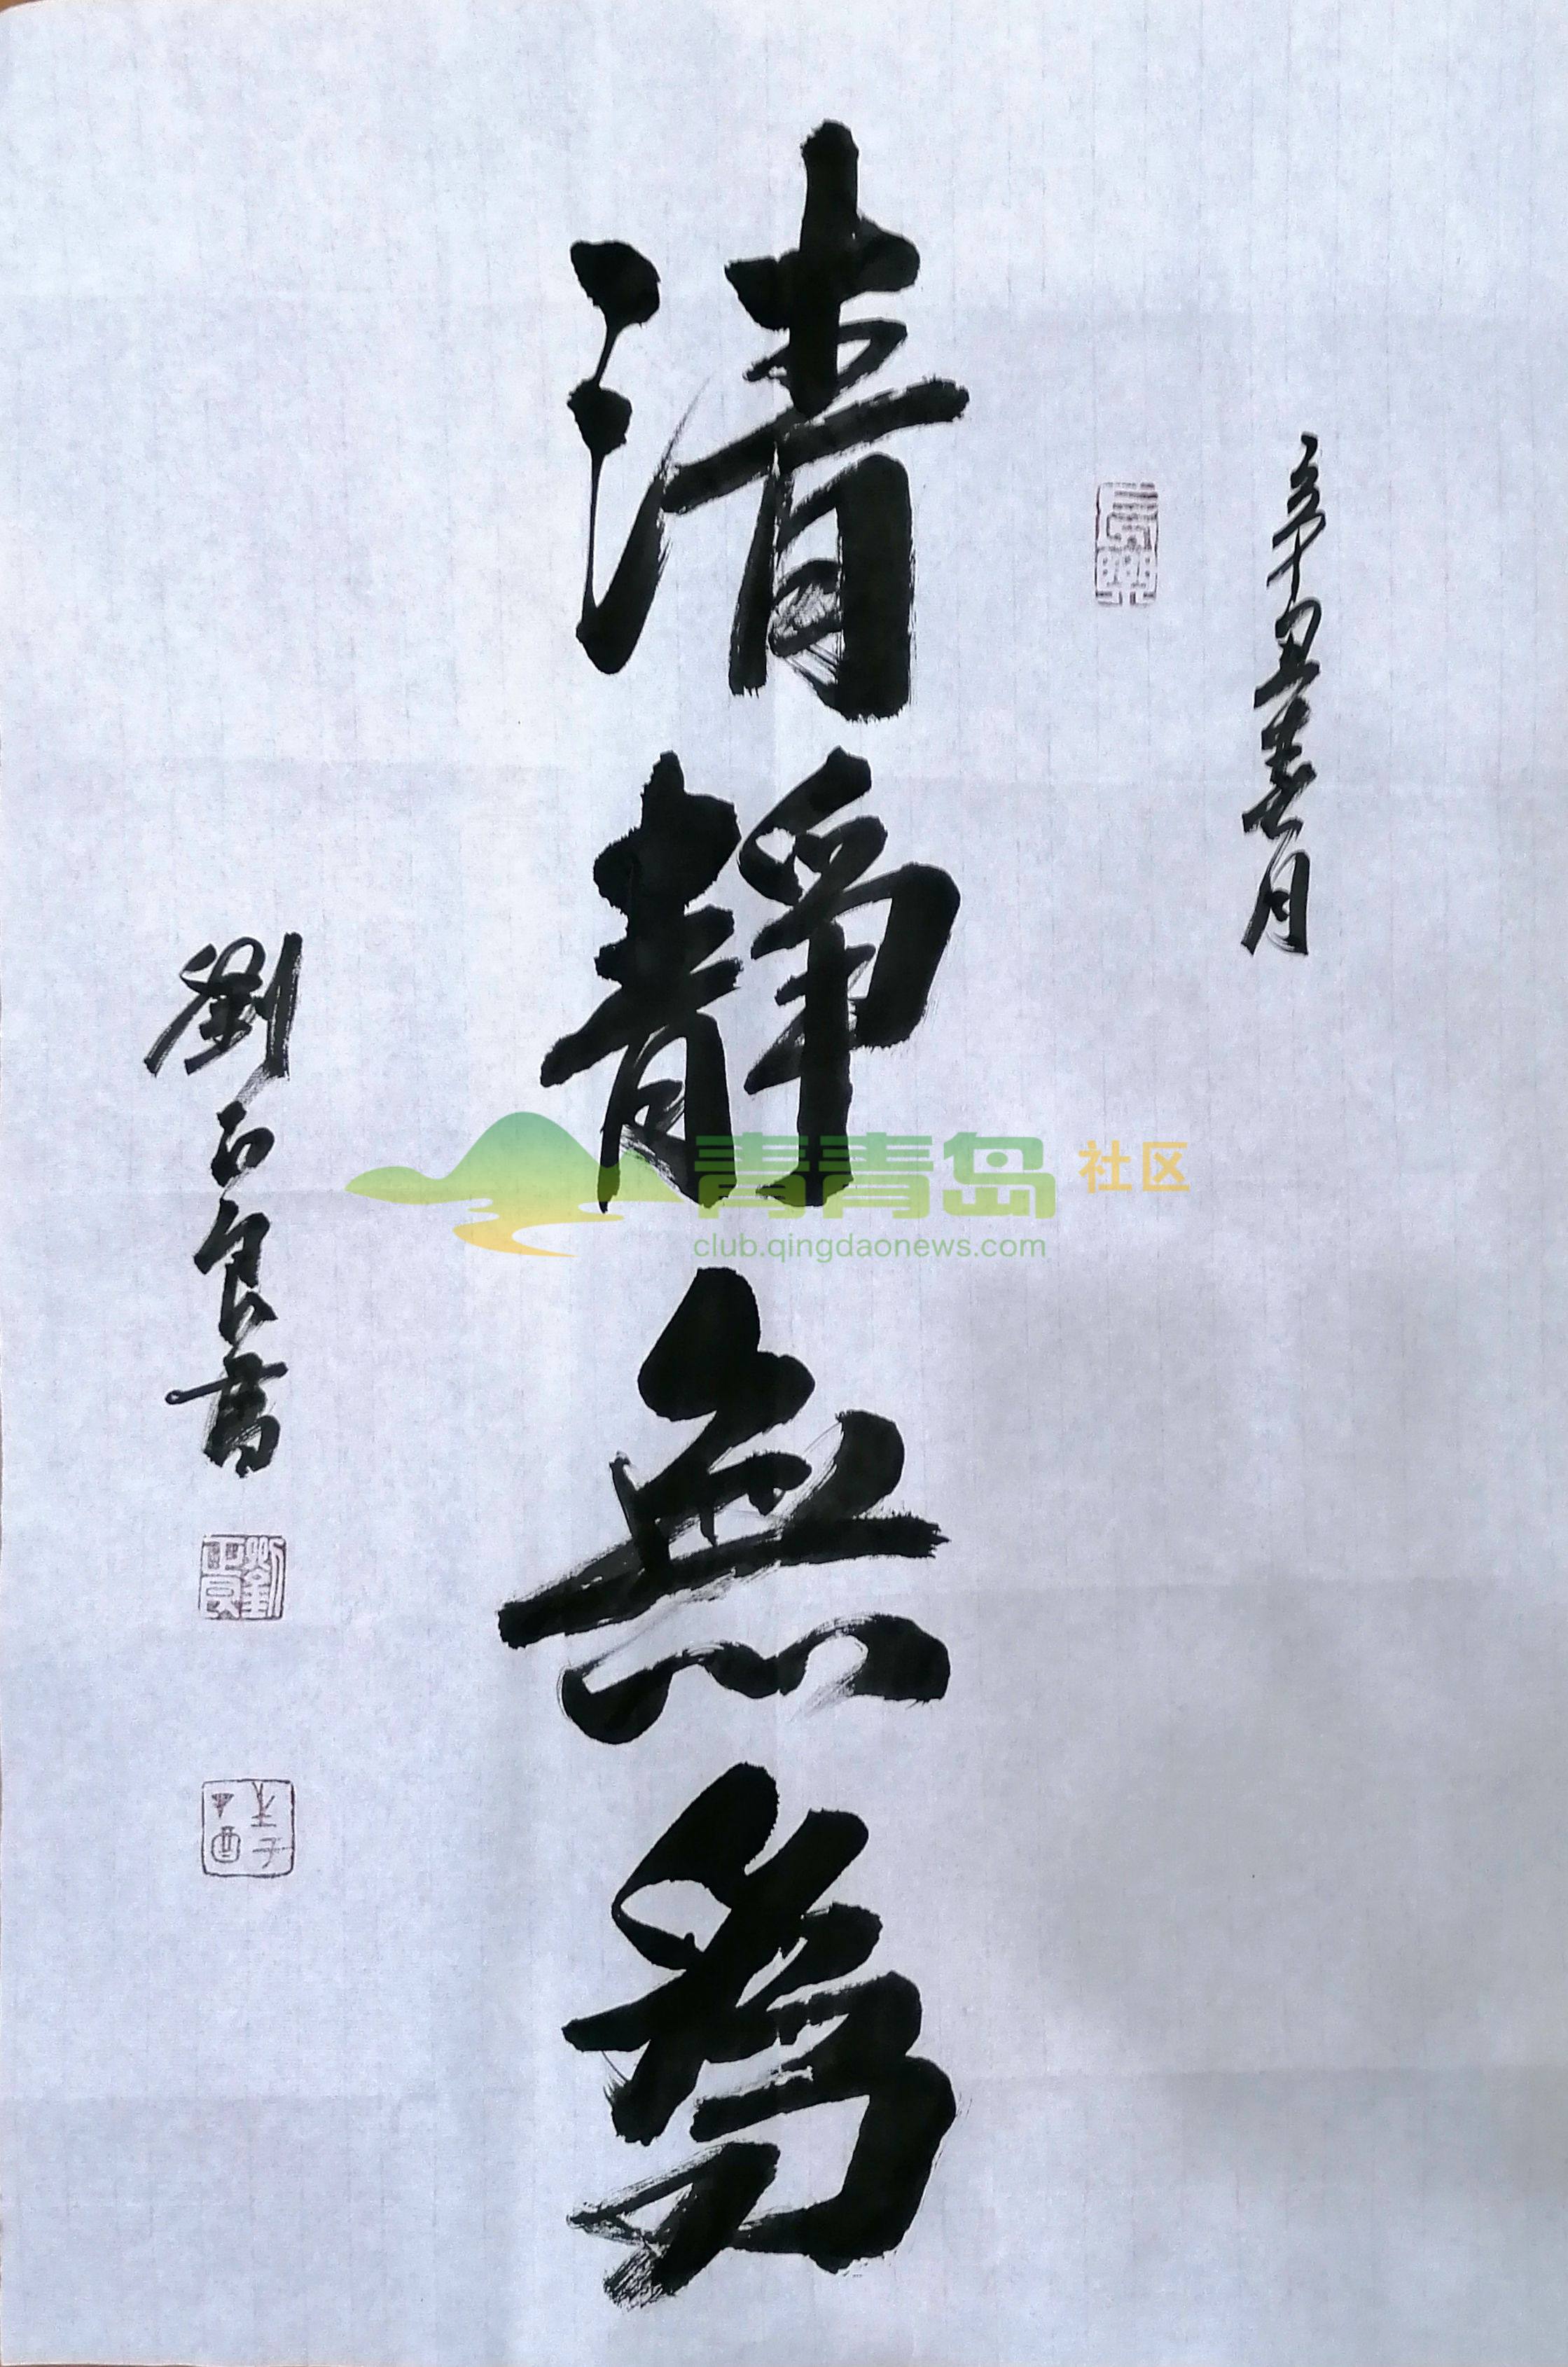 辛丑春月
清靜無為
劉正良書
劉正良
青青岛 社区
club.qingdaonews.com